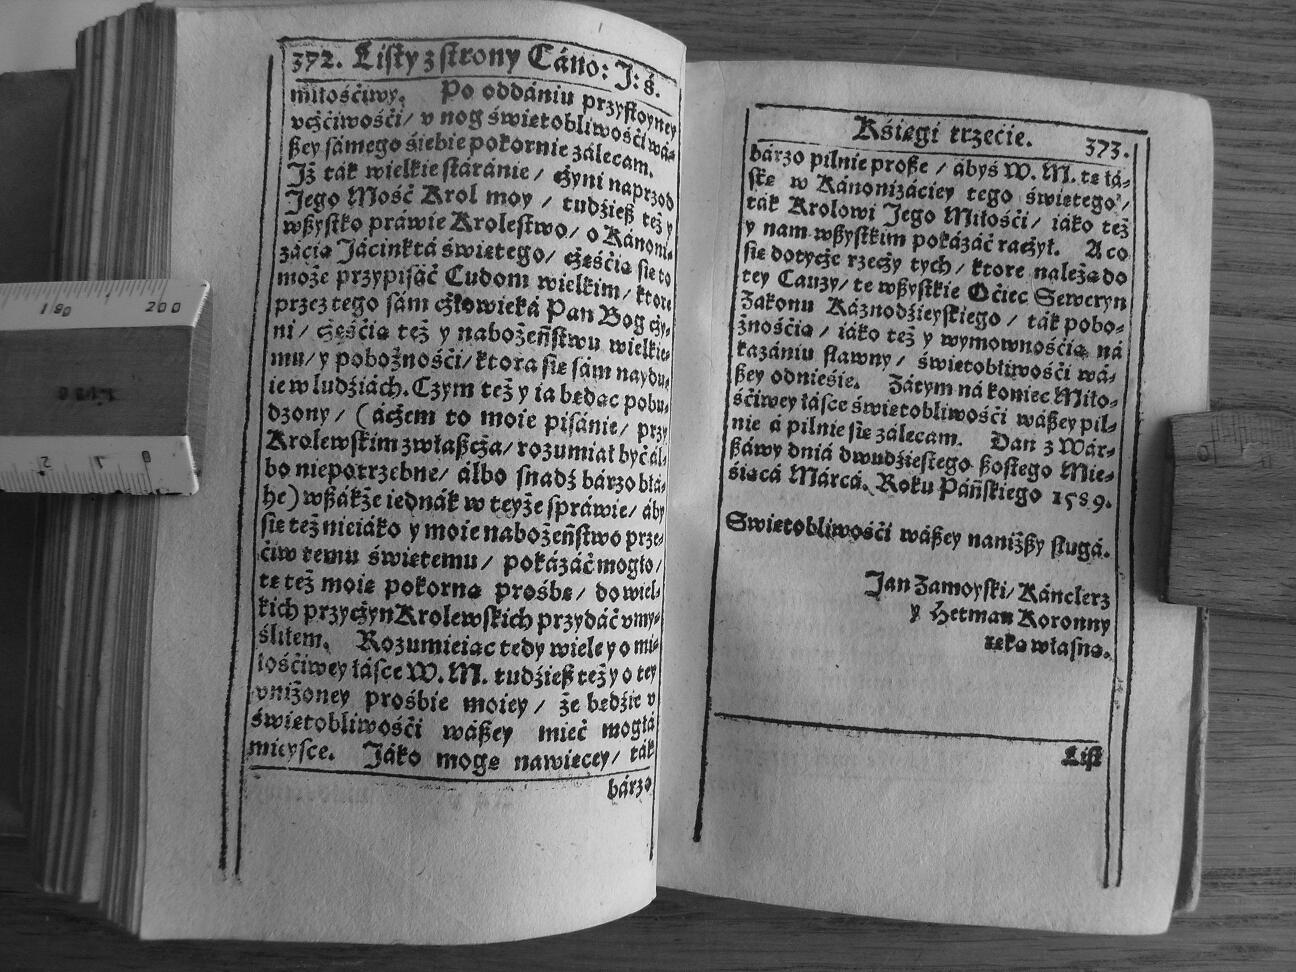 372. Listy z strony Cáno: J: ś.
miłośćiwy. Po oddániu przystoyney
vczćiwośći/ v nog świetobliwośći wá-
ßey sámego śiebie pokornie zálecam.
Jż ták wielkie stáránie / czyni naprzod
Jego Mość Krol moy / tudźieß też y
wßystko práwie Krolestwo/ o Kánoni-
zácią Jácinktá świętego/ częśćią się to
może przypisáć Cudom wielkim/ ktore
przez tego sám człowieká Pan Bog czy-
ni/ częśćią też y nabożeństwu wielkie-
mu/ y pobożnośći/ ktora się sám naydu-
ie w ludźiách. Czym też y ia będąc pobu-
dzony / (áczem to moie pisánie/ przy
Krolewskim zwłaßczá/ rozumiał być ál-
bo niepotrzebne/ álbo snadź bárzo błá-
he) wßákże iednák w teyże spráwie/ áby
się też nieiáko y moie nabożeństwo prze-
ćiw temu świętemu/ pokázáć mogło/
tę też moię pokorną prośbę/ do wiel-
kich przyczyn Krolewskich przydáć vmy-
śliłem. Rozumieiąc tedy wiele y o mi-
łośćiwey łásce W. M. tudźieß też y o tey
vniżoney prośbie moiey/ że będźie v
świetobliwośći wáßey mieć mogłá
mieysce. Jáko mogę nawięcey/ ták
bárzo
Kśięgi trzećie. 373.
bárzo pilnie proßę/ ábyś W. M. tę łá-
skę w Kánonizáciey tego świętego/
ták Krolowi Jego Miłośći/ iáko też
y nam wßystkim pokázáć raczył. A co
się dotycze rzeczy tych/ ktore należą do
tey Cauzy/ te wßystkie Oćiec Seweryn
Zakonu Káznodźieyskiego / ták pobo-
żnośćią/ iáko też y wymownośćią ná
kazániu sławny/ świetobliwośći wá-
ßey odnieśie. Zátym ná koniec Miło-
śćiwey łásce świetobliwośći wáßey pil-
nie á pilnie się zálecam. Dan z Wár-
ßáwy dniá dwudźiestego ßostego Mie-
śiącá Márcá. Roku Páńskiego 1589.
Swietobliwośći wáßey naniżßy sługá.
Jan Zamoyski/ Kánclerz
y Hetman Koronny
ręką własną.
List